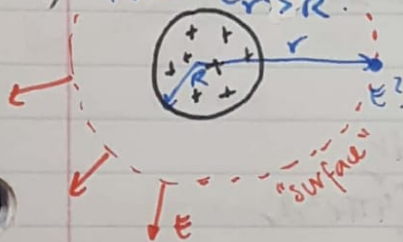 r > R.
r
R
E?
"surface"
E